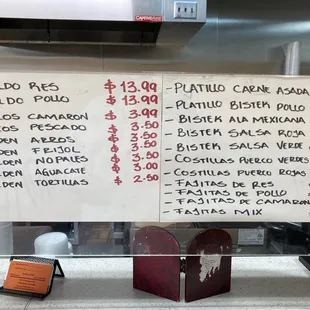 LDO RES $13.99
LDO POLLO $13.99
OS CAMARON $3.99
OS PESCADO $3.50
DEN ARROS $3.50
DEN FRIJOL $3.50
DEN NOPALES $3.50
DEN AGUACATE $3.00
DEN TORTILLAS $2.50
- PLATILLO CARNE ASADA
- PLATILLO BISTEK POLLO
- BISTEK ALA MEXICANA
- BISTEK SALSA ROJA
- BISTEK SALSA VERDE
- COSTILLAS PUERCO VERDES
- COSTILLAS PUERCO ROJAS
- FAJITAS DE RES
- FAJITAS DE POLLO
- FAJITAS DE CAMARON
- FAJITAS MIX